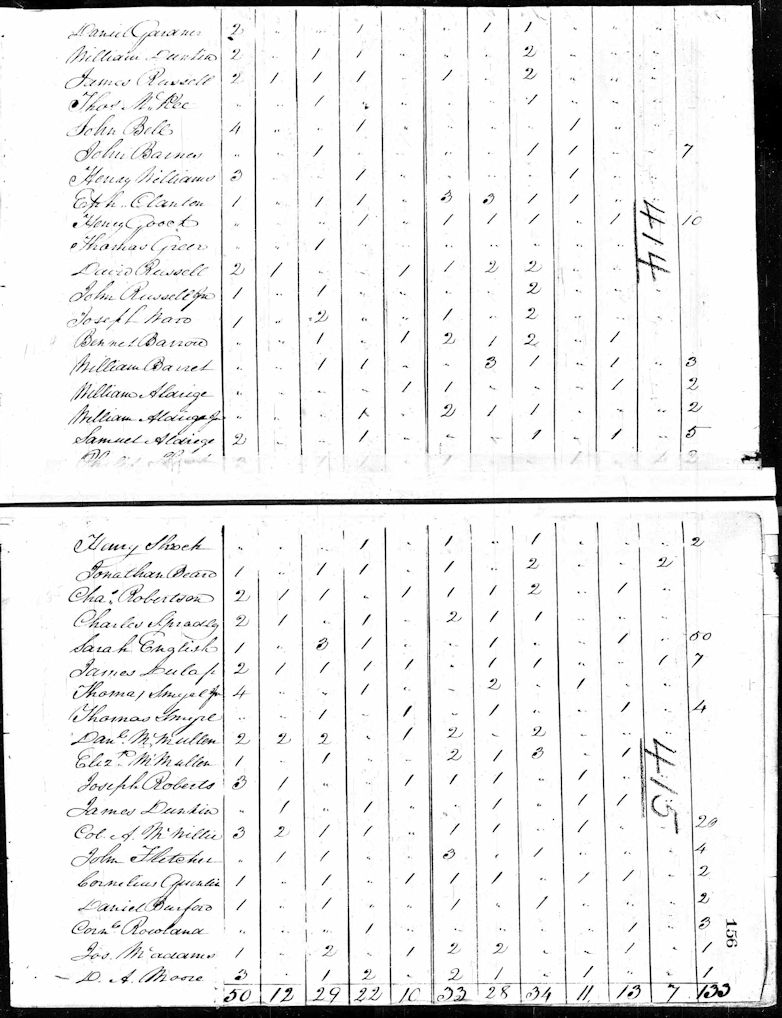 Daniel Gardner 2 " " 1 " " 1 1 " " "
William Duntin 2 " 1 1 " " " 2 " " "
James Russell 2 1 1 1 " 1 " 2 " " "
Thos McKee " " 1 " " " " 1 " " "
John Bell 4 " " 1 " " " " 1 " "
John Barnes " " 1 " " " " 1 1 " " 7
Henry Williams 3 " " 1 " " " " 1 " "
Clanton 1 " 1 1 " 3 3 1 1 " "
Henry " " " 1 " 1 1 1 " 1 " 10
Thomas Greer " " 1 " " " " " " " "
David Russell 2 1 " " 1 1 2 2 " " "
John Russell Jnr 1 " 1 " " " " 2 " " "
Joseph Ward 1 " 2 " " 1 " 2 " " "
Bennet Barrow " " 1 " 1 2 1 2 " 1 "
William Barret " " 1 1 " " 3 1 " 1 " 3
William Aldrige " " " " 1 1 " " " 1 " 2
William Aldrige Jr " " " 1 " 2 1 1 " " " 2
Samuel Aldrige 2 " " 1 " " " 1 " 1 " 5
2
414
Henry Shock " " " 1 " 1 " 1 " " " 2
Jonathan Beard 1 " 1 1 " 1 " 2 " " 2
Chas. Robertson 2 1 1 " 1 1 1 2 " 1 "
Charles Spradley 2 1 " 1 " 2 1 1 " " "
Sarah English 1 " 3 1 " " 1 " " 1 " 50
James Dulap 2 1 1 1 1 " 1 1 " " 1 7
Thomas Jr 4 " " 1 " " 2 " 1 " "
Thomas " " 1 " 1 " 1 " " 1 " 4
Danl. McMullen 2 2 2 " 1 2 " 2 " " "
Elizth. McMullen 1 " 1 " " 2 1 3 " 1 "
Joseph Roberts 3 1 " " 1 1 1 " 1 " "
James Dunkin " 1 " 1 " " 1 " 1 1 "
Col. A. McWillie 3 2 1 1 " 1 1 " 1 " " 20
John Fletcher " 1 1 " " 3 " 1 " " " 4
Cornelius 1 " 1 " 1 1 1 " 1 " " 2
Daniel Burford 1 " 1 " " 1 " 1 " " " 2
Corns. Rowland " " " 1 " " " " " 1 " 3
Jos. McAdams 1 " 2 " 1 2 2 " " 1 " 1
D. A. Moore 3 " 1 2 " 2 1 " 1 " " 1
50 12 29 22 10 33 28 34 11 13 7 133
415
156